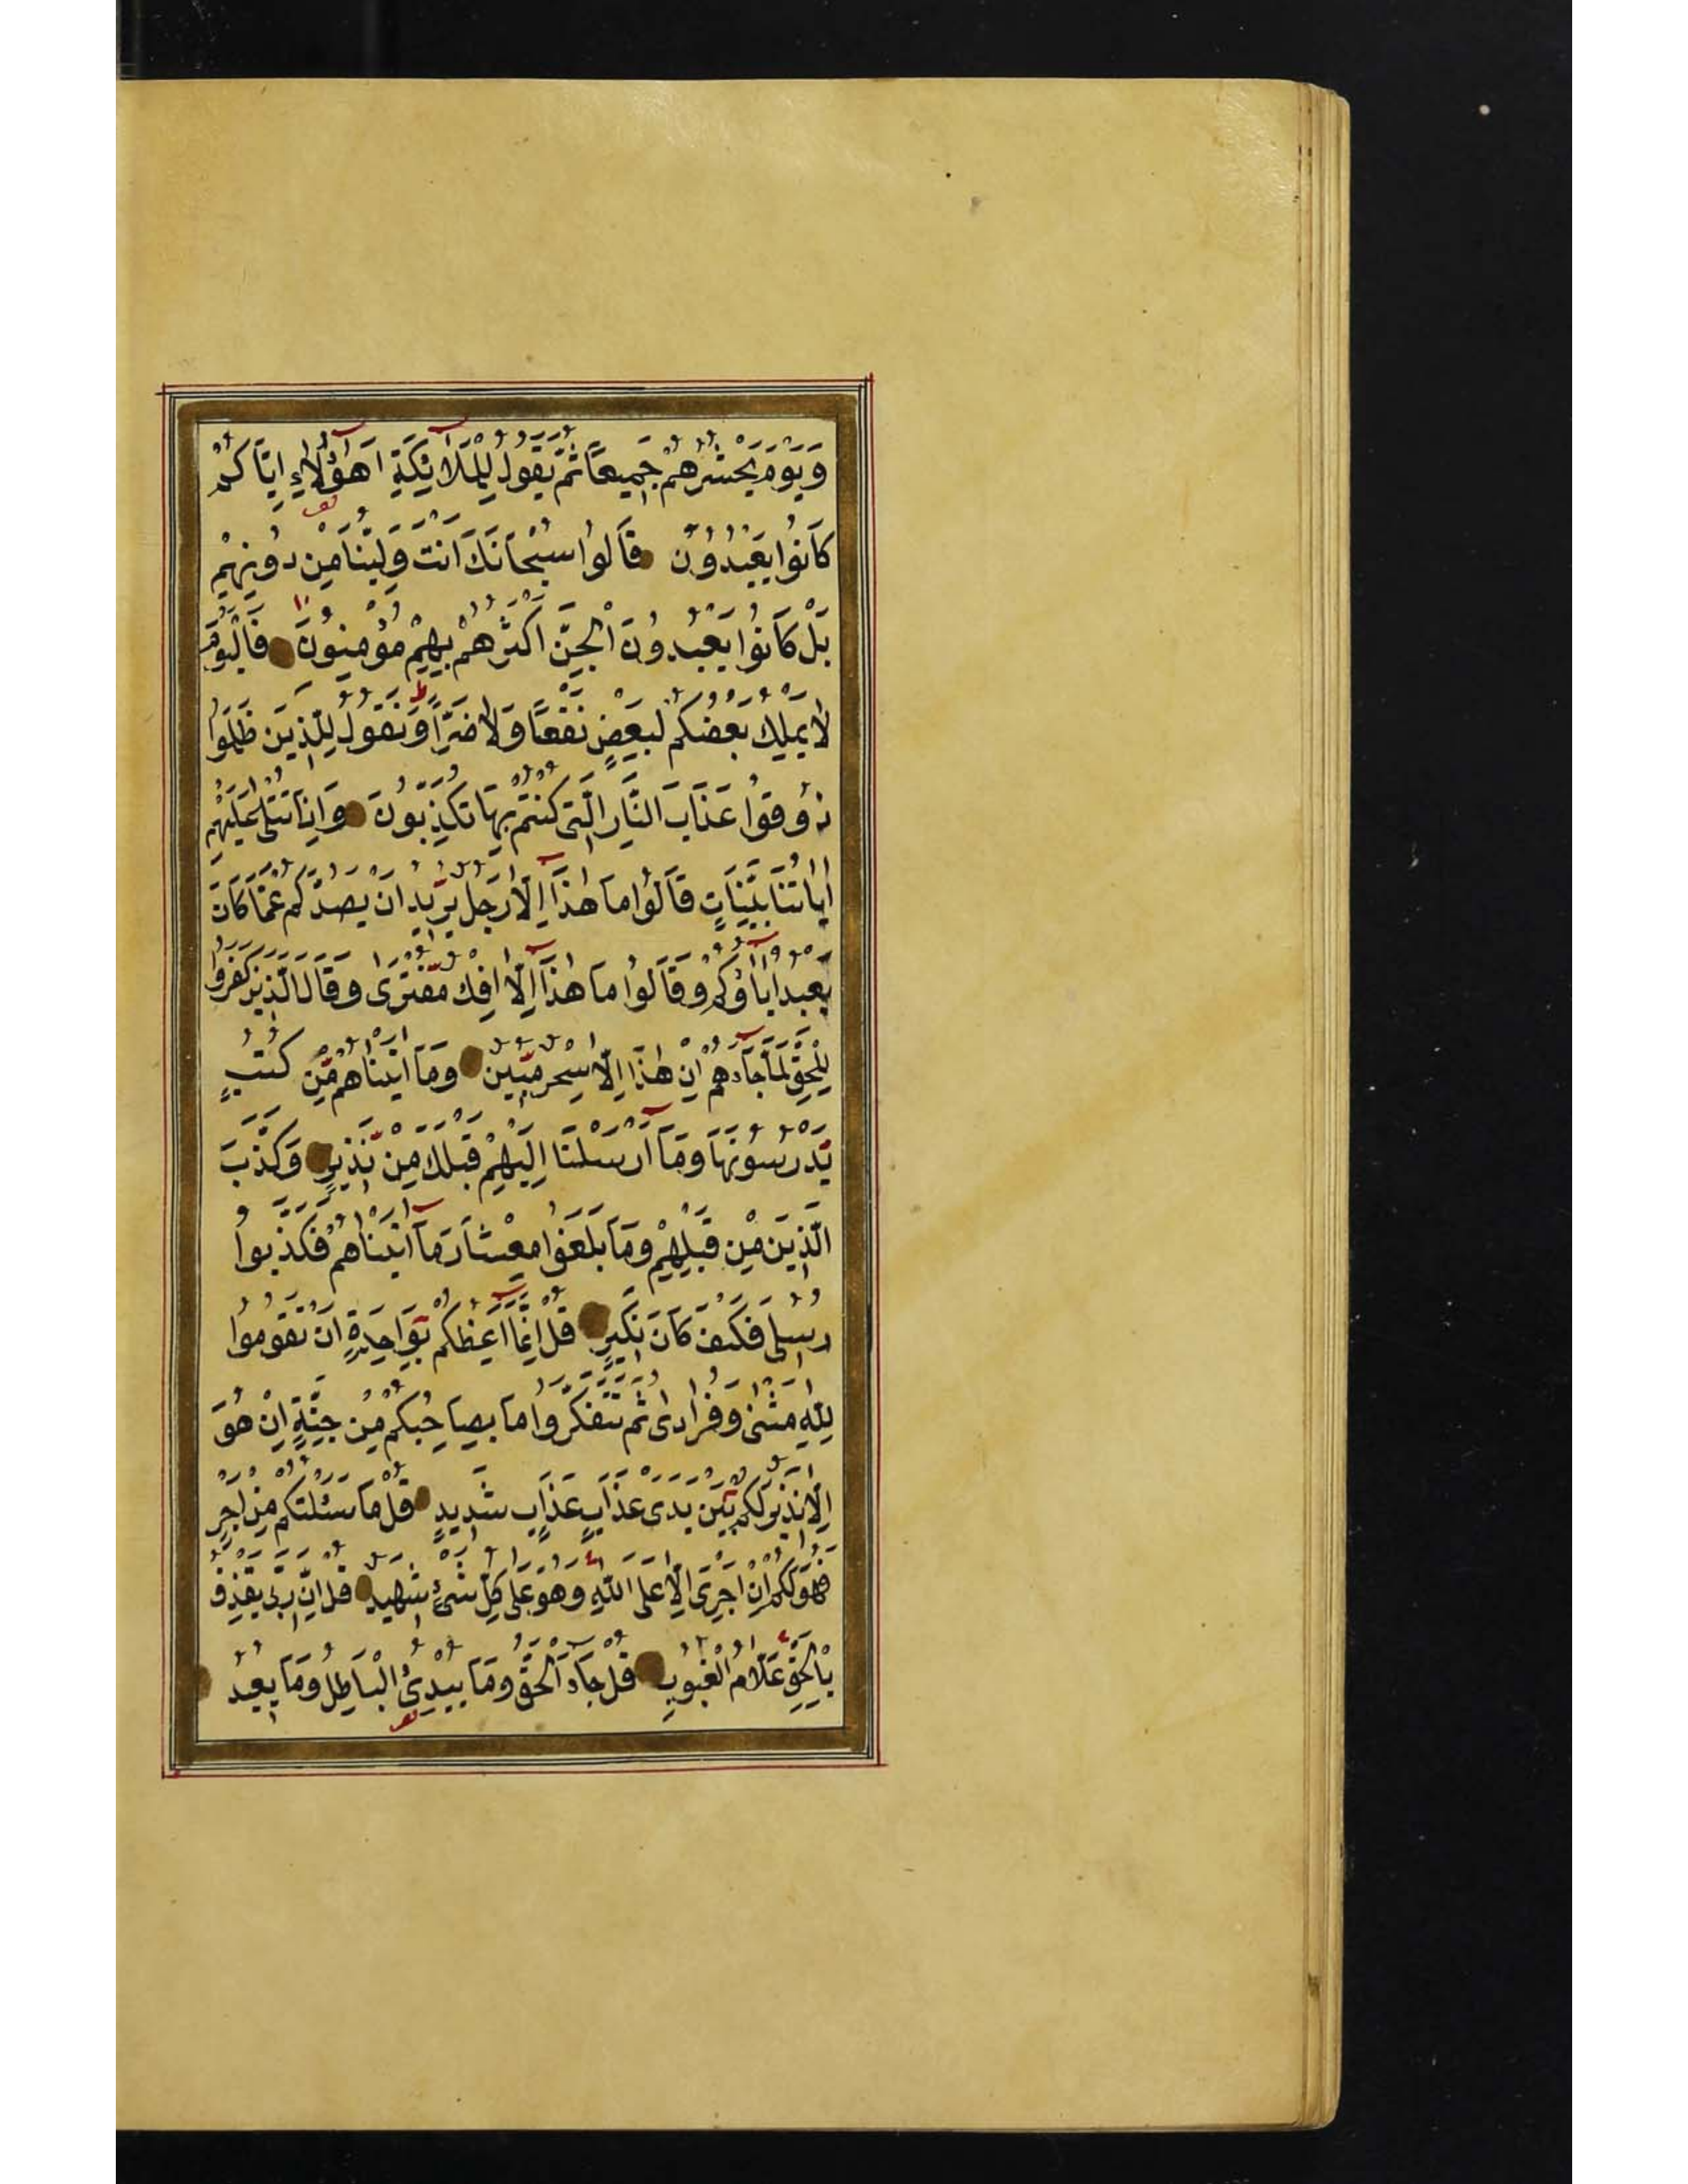 وَيَوْمَ يَحْشُرُهُمْ جَمِيعًا ثُمَّ يَقُولُ لِلْمَلَائِكَةِ اَهٰٓؤُلَاءِ اِيَّاكُمْ
كَانُوا يَعْبُدُونَ قَالُوا سُبْحَانَكَ اَنْتَ وَلِيُّنَا مِنْ دُونِهِمْ
بَلْ كَانُوا يَعْبُدُونَ الْجِنَّ اَكْثَرُهُمْ بِهِمْ مُؤْمِنُونَ فَالْيَوْمَ
لَا يَمْلِكُ بَعْضُكُمْ لِبَعْضٍ نَفْعًا وَلَا ضَرًّا وَنَقُولُ لِلَّذِينَ ظَلَمُوا
ذُوقُوا عَذَابَ النَّارِ الَّتِى كُنْتُمْ بِهَا تُكَذِّبُونَ وَاِذَا تُتْلٰى عَلَيْهِمْ
اٰيَاتُنَا بَيِّنَاتٍ قَالُوا مَا هٰذَٓا اِلَّا رَجُلٌ يُرِيدُ اَنْ يَصُدَّكُمْ عَمَّا كَانَ
يَعْبُدُ اٰبَٓاؤُكُمْ وَقَالُوا مَا هٰذَٓا اِلَّٓا اِفْكٌ مُفْتَرًى وَقَالَ الَّذِينَ كَفَرُوا
لِلْحَقِّ لَمَّا جَٓاءَهُمْ اِنْ هٰذَا اِلَّا سِحْرٌ مُبِينٌ وَمَٓا اٰتَيْنَاهُمْ مِنْ كُتُبٍ
يَدْرُسُونَهَا وَمَٓا اَرْسَلْنَا اِلَيْهِمْ قَبْلَكَ مِنْ نَذِيرٍ وَكَذَّبَ
الَّذِينَ مِنْ قَبْلِهِمْ وَمَا بَلَغُوا مِعْشَارَ مَٓا اٰتَيْنَاهُمْ فَكَذَّبُوا
رُسُلِى فَكَيْفَ كَانَ نَكِيرِ قُلْ اِنَّمَٓا اَعِظُكُمْ بِوَاحِدَةٍ اَنْ تَقُومُوا
لِلّٰهِ مَثْنٰى وَفُرَادٰى ثُمَّ تَتَفَكَّرُوا مَا بِصَاحِبِكُمْ مِنْ جِنَّةٍ اِنْ هُوَ
اِلَّا نَذِيرٌ لَكُمْ بَيْنَ يَدَىْ عَذَابٍ عَذَابٍ شَدِيدٍ قُلْ مَا سَئَلْتُكُمْ مِنْ اَجْرٍ
فَهُوَ لَكُمْ اِنْ اَجْرِىَ اِلَّا عَلَى اللّٰهِ وَهُوَ عَلٰى كُلِّ شَىْءٍ شَهِيدٌ قُلْ اِنَّ رَبِّى يَقْذِفُ
بِالْحَقِّ عَلَّامُ الْغُيُوبِ قُلْ جَٓاءَ الْحَقُّ وَمَا يُبْدِئُ الْبَاطِلُ وَمَا يُعِيدُ